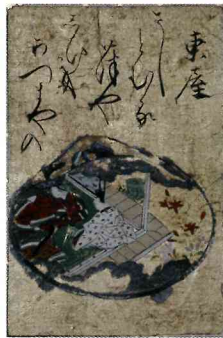 東屋
さし
とむる
葎や
しけき
あつまやの